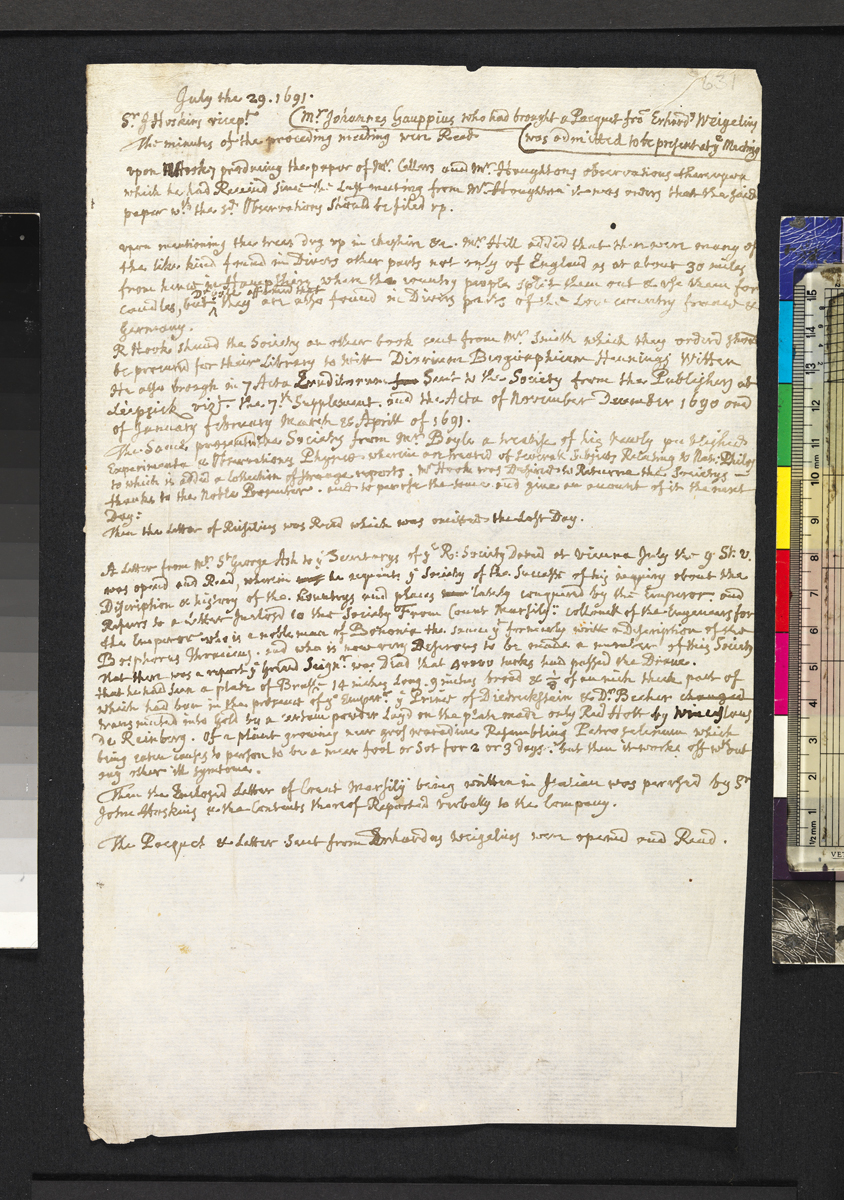 631
July the 29. 1691.
Sr J Hoskins vicepr. (Mr. Johannes Gauppius who had brought a Pacquet fro Erhard Weigelius
The minutes of the preceding meeting were Read (was admitted to be present at ye Meeting
upon RHooks producing the paper of Mr. Collins and Mr. Houghtons observations thereupon
which he had Received since the Last meeting from Mr Houghton it was orderd that the said
paper wth the sd Observations should be filed up.
upon mentioning the trees dug up in cheshire &c. Mr Hill added that ther were many of
the like kind found in Divers other parts not only of England as at about 30 miles
from hence in Hampshire where the country people split them out & use them for
candles, but they are also found in Divers parts of the Low country france &
Germany.
R Hook shewd the Society an other book sent from Mr. Smith which they orderd should
be procured for their Library to witt Diarium Biographicum Hennings Witten
He also brough in 7 Acta Eruditorum Sent to the Society from the Publishers at
Leipzick vizt. the 7th Supplement and the Acta of November December 1690 and
of January february March & Aprill of 1691.
The Same presented the Society from Mr Boyle a treatise of his newly published
Experimenta & Observationes Physicæ wherein are treated of severall subjects Relating to Nat: Philos
to which is added a Collection of strange reports. Mr Hook was Desired to Returne the Societys
thanks to the Noble Presenter. and to peruse the same and give an account of it the next
Day:
Then the Letter of Reiselius was Read which was omitted the Last Day.
A Letter from Mr. St George Ash to ye Secretarys of ye R: Society Dated at Vienna July the 9 St: v.
was opend and Read, wherein he acquints ye Society of the Success of his inquiry about the
Discription & history of the Countrys and places lately conquerd by the Emperor. and
Refers to a Letter Inclosd to the Society From Count Marsily: collonell of the Engeneers for
the Emperor who is a noble man of Bononia the same yt formerly writt a Discription of the
Bosphorus Thracicus. and who is now very Desirous to be made a member of this Society
that there was a report ye Grand Seignr. was Dead that 40000 turks had passed the Drave.
that he had seen a plate of Brass 14 inches Long. 9 inches broad & 1/8 of an inch thick part of
which had been in the presence of ye Emper. ye Prince of Diedrichstain & Dr. Becher changed
transmuted into Gold by a certain powder Layd on the plate made only Red Hott by Winceslaus
de Reinberg. Of a plant growing near gros waradine Resembling Petroselinum which
being eaten causes to person to be a meer fool or Sot for 2 or 3 days. but then it works off wthout
any other ill symtome.
Then the Enclosed Letter of Count Marsily being written in Italian was perused by Sr
John Hoskins & the Contents thereof Reported verbally to the Company.
The Pacquet & Letter Sent from Erhardus Weigelius were opened and Read.